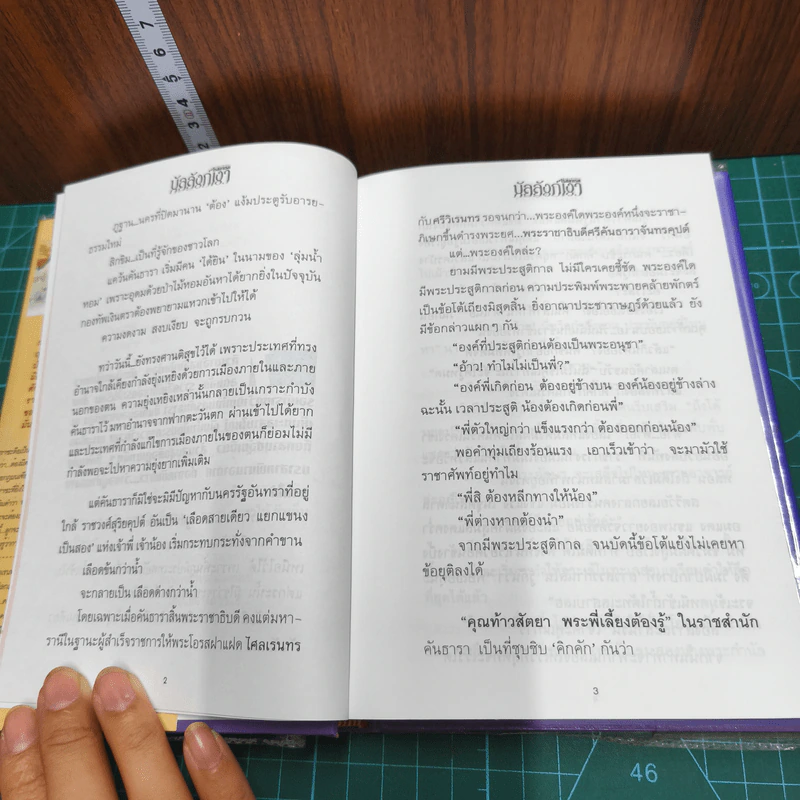 มัลลังก์เงา
ปฐาน...นครที่ปิดมานาน ‘ต้อง’ แง้มประตูรับอารย-
ธรรมใหม่
สิกขิม...เป็นที่รู้จักของชาวโลก
แคว้นคันธารา เริ่มมีคน ‘ได้ยิน’ ในนามของ ‘ลุ่มน้ำ
หอม’ เพราะอุดมด้วยป่าไม้หอมอันหาได้ยากยิ่งในปัจจุบัน
กองทัพเงินตราต้องพยายามแหวกเข้าไปให้ได้
ความงดงาม สงบเงียบ จะถูกรบกวน
ทว่าวันนี้...ยังทรงศานติสุขไว้ได้ เพราะประเทศที่ทรง
อำนาจใกล้เคียงกำลังยุ่งเหยิงด้วยการเมืองภายในและภาย
นอกของตน ความยุ่งเหยิงเหล่านั้นกลายเป็นเกราะกำบัง
คันธาราไว้ มหาอำนาจจากฟากตะวันตก ผ่านเข้าไปได้ยาก
และประเทศที่กำลังแก้ไขการเมืองภายในของตนก็ย่อมไม่มี
กำลังพอจะไปหาความยุ่งยากเพิ่มเติม
แต่คันธาราก็มิใช่จะมิมีปัญหากับนครรัฐอันทราที่อยู่
ใกล้ ราชวงศ์สุริยคุปต์ อันเป็น ‘เลือดสายเดียว แยกแขนง
เป็นสอง’ แห่งเจ้าพี่ เจ้าน้อง เริ่มกระทบกระทั่งจากคำขาน
เลือดข้นกว่าน้ำ
จะกลายเป็น เลือดต่างกว่าน้ำ
โดยเฉพาะเมื่อคันธาราสิ้นพระราชาธิบดี คงแต่มหา-
รานีในฐานะผู้สำเร็จราชการให้พระโอรสฝาแฝด ไศลเรนทร
2
มัลลังก์เงา
กับ ศรีวิเรนทร รอจนกว่า...พระองค์ใดพระองค์หนึ่งจะราชา-
ภิเษกขึ้นดำรงพระยศ...พระราชาธิบดีศรีคันธาราจันทรคุปต์
แต่...พระองค์ใดล่ะ?
ยามมีพระประสูติกาล ไม่มีใครเคยชี้ชัด พระองค์ใด
มีพระประสูติกาลก่อน ความประพิมพ์ประพระพายคล้ายพักตร์
เป็นข้อโต้เถียงมิสุดสิ้น ยิ่งอาณาประชาราษฎร์ด้วยแล้ว ยัง
มีข้อกล่าวแผกๆ กัน
“องค์ที่ประสูติก่อนต้องเป็นพระอนุชา”
“อ้าว! ทำไมไม่เป็นพี่?”
“องค์พี่เกิดก่อน ต้องอยู่ข้างบน องค์น้องอยู่ข้างล่าง
ฉะนั้น เวลาประสูติ น้องต้องเกิดก่อนพี่”
“พี่ตัวใหญ่กว่า แข็งแรงกว่า ต้องออกก่อนน้อง”
พอคำทุ่มเถียงร้อนแรง เอาเร็วเข้าว่า จะมามัวใช้
ราชาศัพท์อยู่ทำไม
“พี่สิ ต้องหลีกทางให้น้อง”
“พี่ต่างหากต้องนำ”
จากมีพระประสูติกาล จนบัดนี้ข้อโต้แย้งไม่เคยหา
ข้อยุติลงได้
“คุณท้าวสัตยา พระพี่เลี้ยงต้องรู้” ในราชสำนัก
คันธารา เป็นที่ซุบซิบ ‘คิกคัก’ กันว่า
3
7
6
5
4
2
46